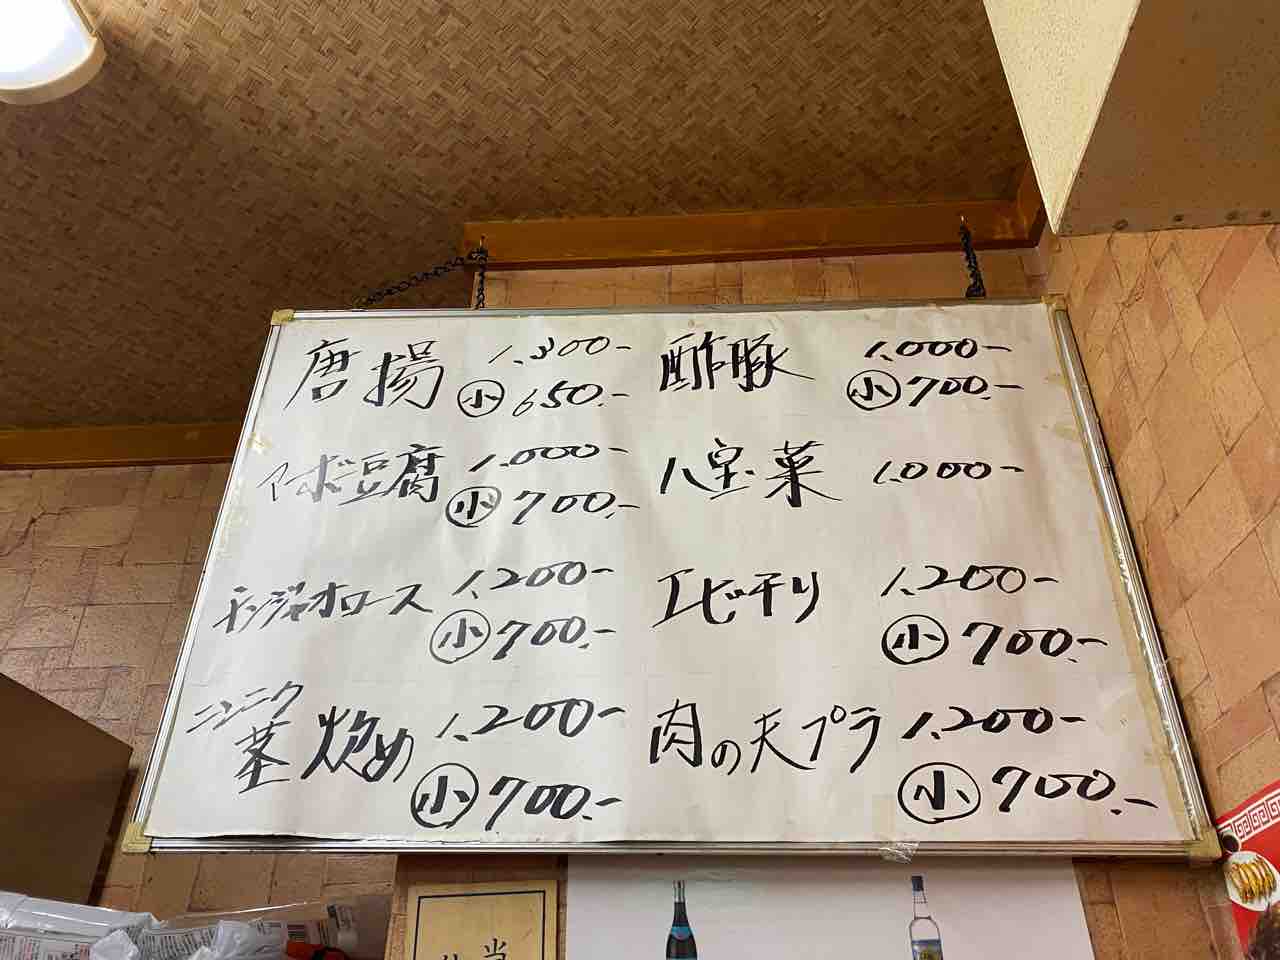 唐揚 1,300-
小 650.-
マーボ豆腐 1,000-
小 700.-
チンジャオロース 1,200-
小 700.-
ニンニク
茎炒め 1,200-
小 700.-
酢豚 1,000-
小 700.-
八宝菜 1,000-
エビチリ 1,200-
小 700.-
肉の天プラ 1,200-
小 700.-
当